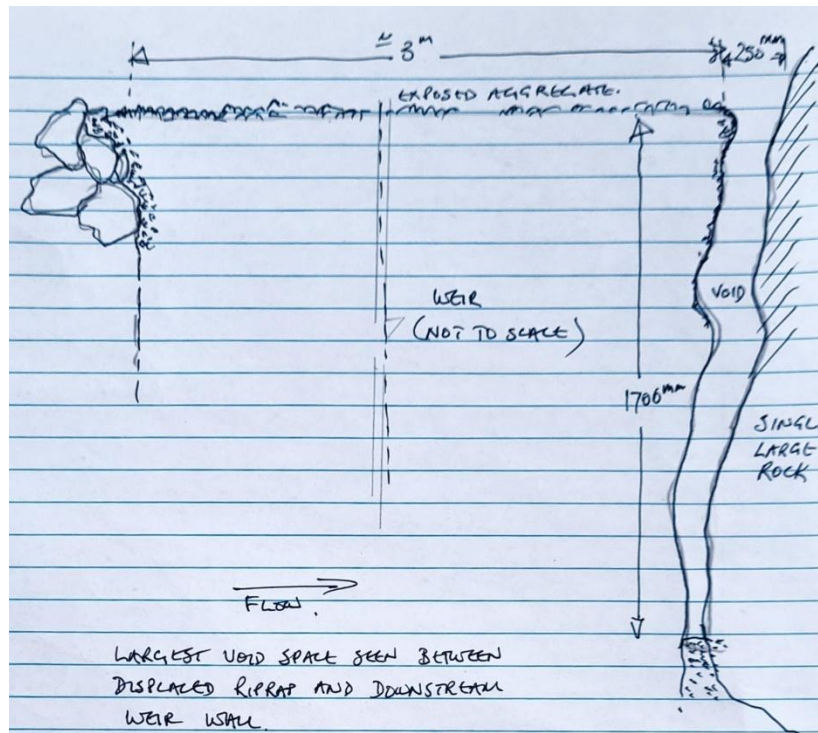 ≈ 3 m
250 mm
EXPOSED AGGREGATE.
VOID
WEIR
(NOT TO SCALE)
1700 mm
SINGL
LARGE
ROCK
FLOW.
LARGEST VOID SPACE SEEN BETWEEN
DISPLACED RIPRAP AND DOWNSTREAM
WEIR WALL.